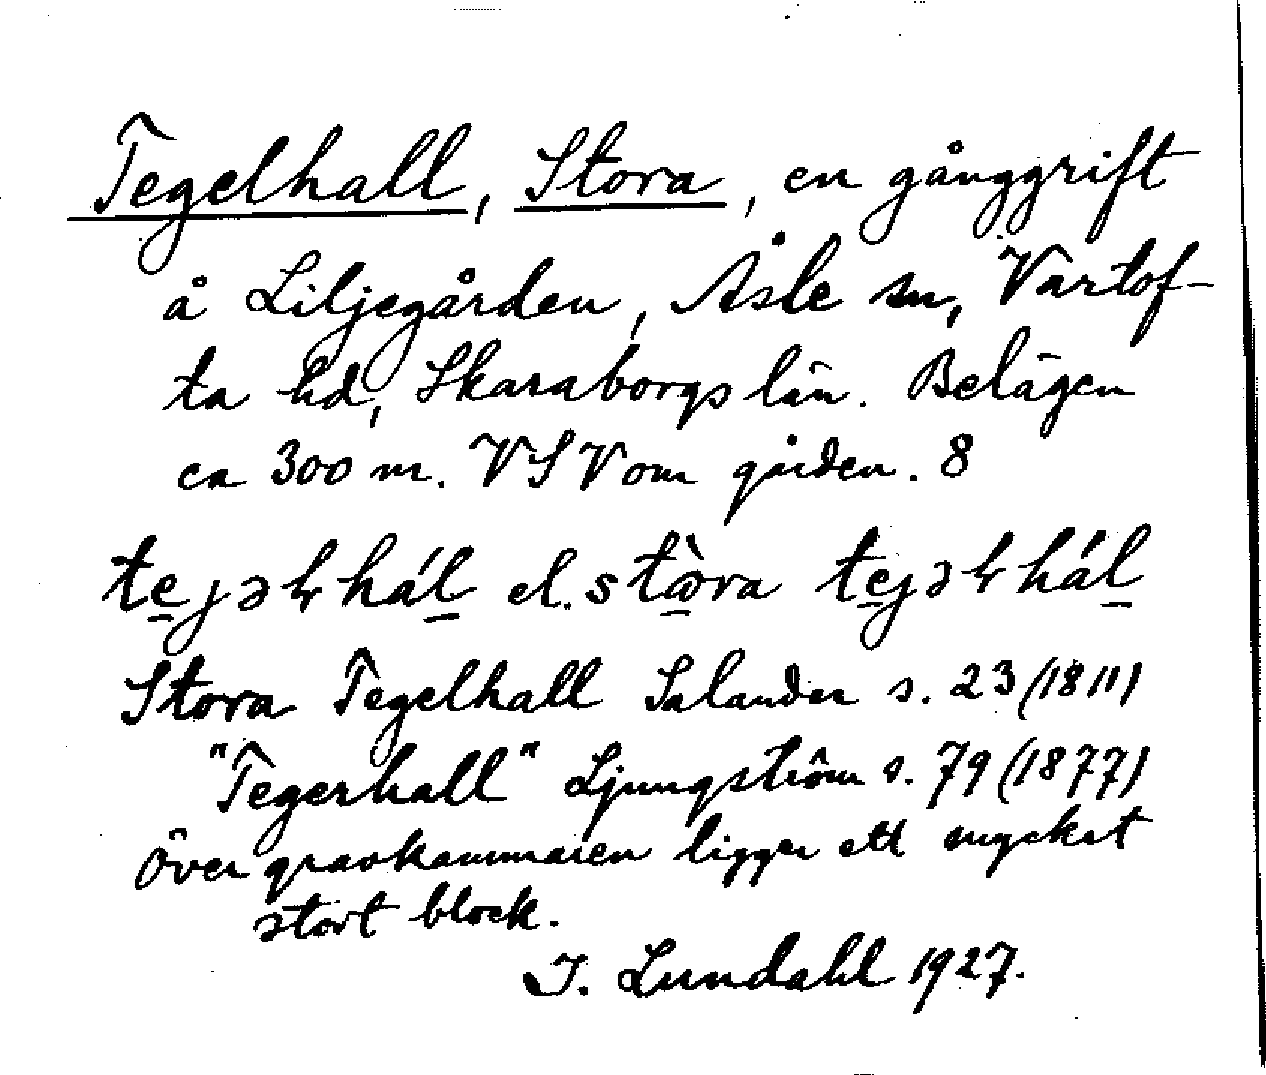 Tegelhall, Stora, en gånggrift
å Liljegården, Åsle sn, Vartof-
ta hd, Skaraborgs län. Belägen
ca 300 m. VSV om gården. 8
te̠jəɫhál̠ el. stɷ̠̀ra te̠jəɫhál̠
Stora Tegelhall Salander s. 23 (1811)
"Tegerhall" Ljungström s. 79 (1877)
Över gravkammaren ligger ett mycket
stort block.
I. Lundahl 1927.